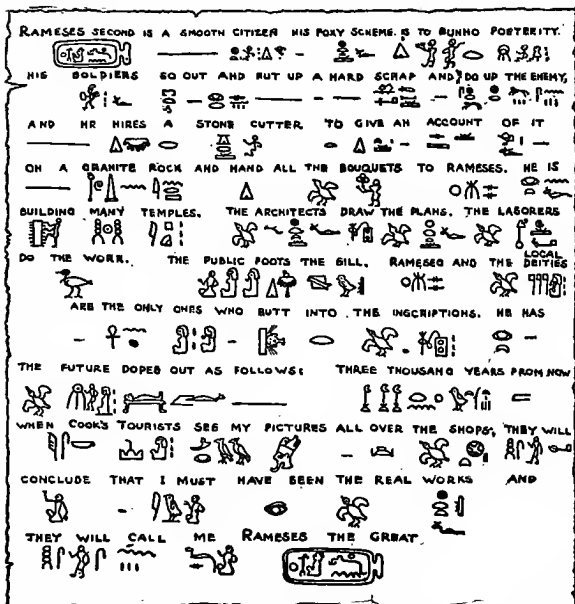 RAMESES SECOND IS A SMOOTH CITIZEN HIS FOXY SCHEME IS TO BUNHO POSTERITY.
HIS SOLDIERS GO OUT AND PUT UP A HARD SCRAP AND DO UP THE ENEMY,
AND HE HIRES A STONE CUTTER TO GIVE AN ACCOUNT OF IT
ON A GRANITE ROCK AND HAND ALL THE BOUQUETS TO RAMESES. HE IS
BUILDING MANY TEMPLES. THE ARCHITECTS DRAW THE PLANS. THE LABORERS
DO THE WORK. THE PUBLIC FOOTS THE BILL. RAMESES AND THE LOCAL DEITIES
ARE THE ONLY ONES WHO BUTT INTO THE INSCRIPTIONS. HE HAS
THE FUTURE DOPED OUT AS FOLLOWS: THREE THOUSAND YEARS FROM NOW
WHEN COOK'S TOURISTS SEE MY PICTURES ALL OVER THE SHOPS, THEY WILL
CONCLUDE THAT I MUST HAVE BEEN THE REAL WORKS AND
THEY WILL CALL ME RAMESES THE GREAT